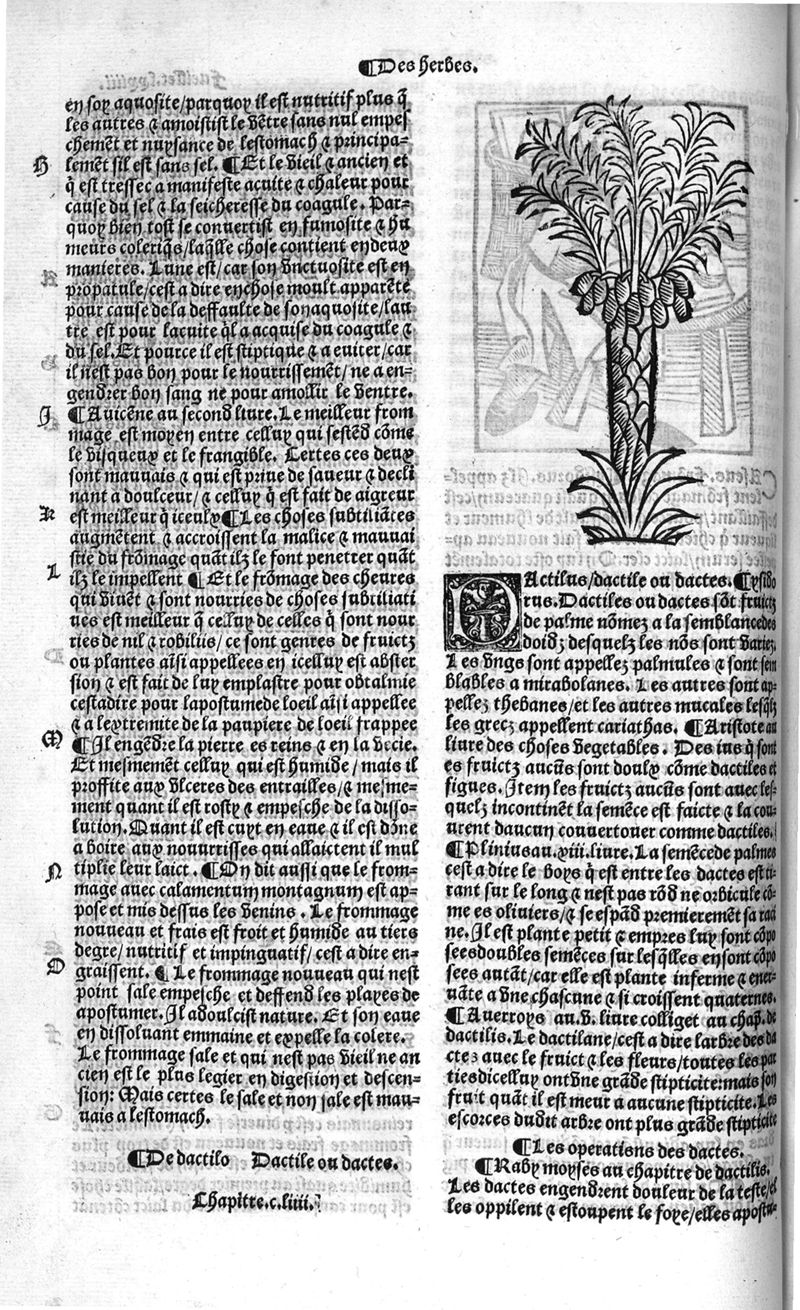 ¶Des herbes.
en soy aquosite/parquoy il est nutritif plus q̃
les autres ⁊ amoistist le vẽtre sans nul empes
chemẽt et nuysance de lestomach ⁊ principa-
H lemẽt sil est sans sel. ¶Et le vieil ⁊ ancien et
q̃ est tressec a manifeste acuite ⁊ chaleur pour
cause du sel ⁊ la seicheresse du coagule. Par-
quoy bien tost se convertist en fumosite ⁊ hu
meurs coleriq̃s/laq̃lle chose contient en deux
manieres. Lune est/car son vnctuosite est en
propatule/cest a dire en chose moult apparẽte
pour cause de la deffaulte de son aquosite/lau
tre est pour lacuite q̃l a acquise du coagule ⁊
du sel. Et pource il est stiptique ⁊ a euiter/car
il nest pas bon pour le nourrissemẽt/ne a en-
gendrer bon sang ne pour amollir le ventre.
J ¶Auicẽne au second liure. Le meilleur from
mage est moyen entre celluy qui sestẽd cõme
le visqueux et le frangible. Certes ces deux
sont mauuais ⁊ qui est priue de saueur ⁊ decli
nant a doulceur/⁊ celluy q̃ est fait de aigreur
K est meilleur q̃ iceulx ¶Les choses subtiliãtes
augmẽtent ⁊ accroissent la malice ⁊ mauuai
stie du frõmage quãt ilz le font penetrer quãt
L ilz le impellent ¶Et le frõmage des cheures
qui viuẽt ⁊ sont nourries de choses subtiliati
ues est meilleur q̃ celluy de celles q̃ sont nour
ries de nil ⁊ robiliis/ce sont genres de fruictz
ou plantes aĩsi appellees en icelluy est abster
sion ⁊ est fait de luy emplastre pour obtalmie
cestadire pour lapostume de loeil aĩsi appellee
⁊ a lextremite de la paupiere de loeil frappee
M ¶Jl engẽdre la pierre es reins ⁊ en la vecie.
Et mesmemẽt celluy qui est humide/mais il
proffite aux vlceres des entrailles/⁊ mesme-
ment quant il est rosty ⁊ empesche de la disso-
lution. Quant il est cuyt en eaue ⁊ il est dõne
a boire aux nourrisses qui allaictent il mul
N tiplie leur laict. ¶On dit aussi que le from-
mage auec calamentum montagnum est ap-
pose et mis dessus les venins. Le frommage
nouueau et frais est froit et humide au tiers
degre/nutritif et impinguatif/cest a dire en-
O graissent. ¶Le frommage nouueau qui nest
point sale empesche et deffend les playes de
apostumer. Jl adoulcist nature. Et son eaue
en dissoluant emmaine et expelle la colere.
Le frommage sale et qui nest pas vieil ne an
cien est le plus legier en digestion et descen-
sion: Mais certes le sale et non sale est mau-
uais a lestomach.
¶De dactilo Dactile ou dactes.
Chapitre.c.liiii.
DActilus/dactile ou dactes. ¶Ysido
rus. Dactiles ou dactes sõt fruictz
de palme nõmez a la semblance des
doidz desquelz les nõs sont variez.
Les vngs sont appellez palmules ⁊ sont sem
blables a mirabolanes. Les autres sont ap-
pellez thebanes/et les autres mucales lesq̃lz
les grecz appellent cariathas. ¶Aristote au
liure des choses vegetables. Des ius q̃ sont
es fruictz aucũs sont doulx cõme dactiles et
figues. Jtem les fruictz aucũs sont auec les-
quelz incontinẽt la semẽce est faicte ⁊ la cou
urent daucun couuertouer comme dactiles.
¶Plinius au.xiii.liure. La semẽce de palmes
cest a dire le boys q̃ est entre les dactes est ti-
rant sur le long ⁊ nest pas rõd ne orbicule cõ-
me es oliuiers/⁊ se espãd premieremẽt sa raci
ne. Jl est plante petit ⁊ empres luy sont cõpo
sees doubles semẽces sur lesq̃lles en sont cõpo
sees autãt/car elle est plante inferme ⁊ ener-
uãte a vne chascune ⁊ si croissent quaternes.
¶Auerroys au.v.liure colliget au chap̃. de
dactilis. Le dactilane/cest a dire larbre des da
ctez auec le fruict ⁊ les fleurs/toutes les par
ties dicelluy ont vne grãde stipticite: mais son
fruit quãt il est meur a aucune stipticite. Les
escorces dudit arbre ont plus grãde stipticite
¶Les operatiõs des dactes.
¶Raby moyses au chapitre de dactilis.
Les dactes engendrent douleur de la teste/et
les oppilent ⁊ estoupent le foye/elles apostu-